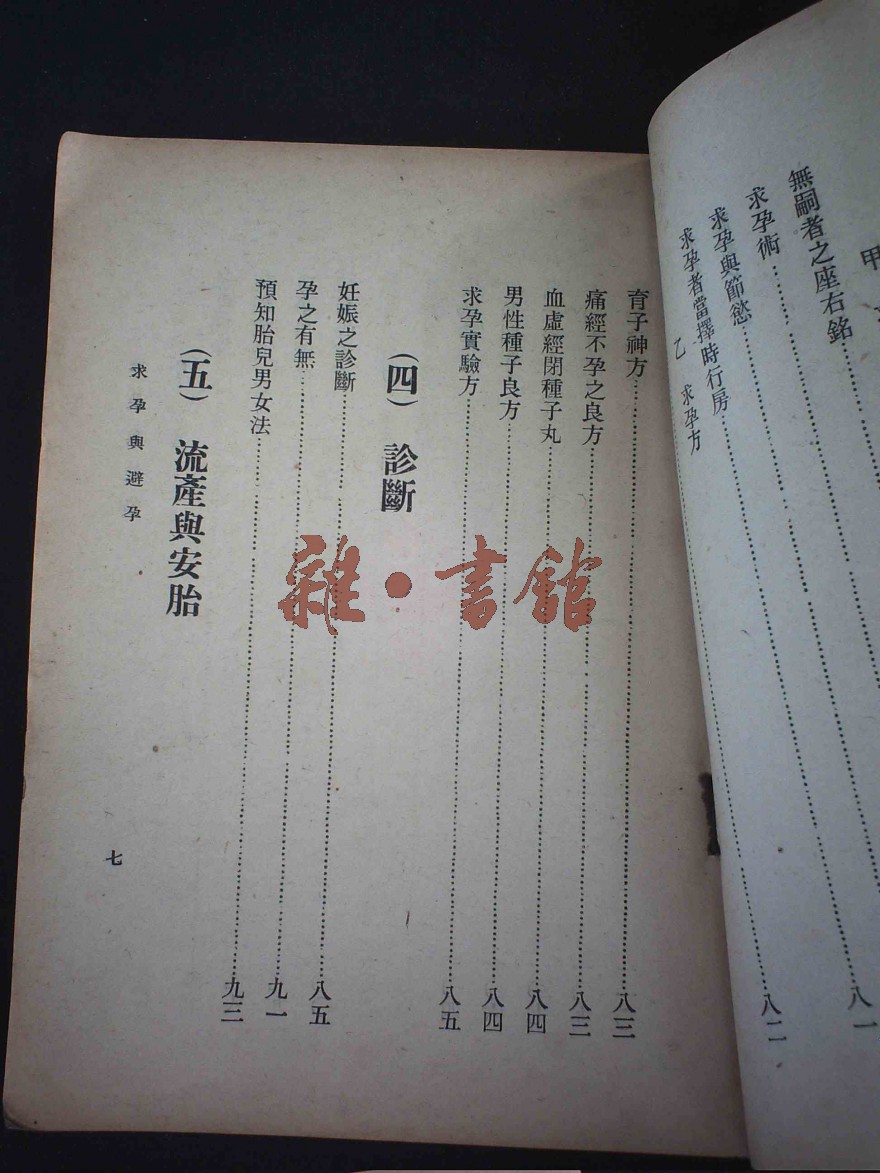 無嗣者之座右銘……八一
求孕術……八二
求孕與節慾
求孕者當擇時行房
乙 求孕方
育子神方……八三
痛經不孕之良方……八三
血虛經閉種子丸……八四
男性種子良方……八四
求孕實驗方……八五
（四） 診斷
妊娠之診斷……八五
孕之有無……九一
預知胎兒男女法……九三
（五） 流產與安胎
求孕與避孕
七
雜·書館